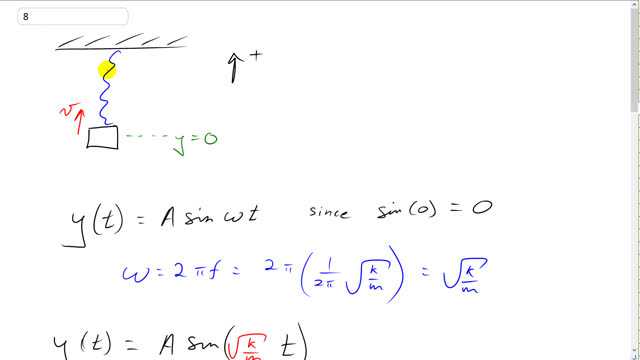 8
+
v
y = 0
y(t) = A sin ωt since sin(0) = 0
ω = 2πf = 2π(1/2π √k/m) = √k/m
y(t) = A sin(√k/m t)